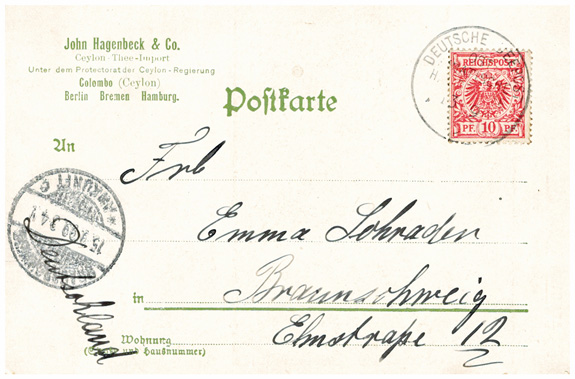 John Hagenbeck & Co.
Ceylon-Thee-Import
Unter dem Protectorat der Ceylon-Regierung
Colombo (Ceylon)
Berlin Bremen Hamburg.
Postkarte
DEUTSCHE
REICHSPOST
PF. 10 PF.
An
Frl
Emma Schrader
ANKUNFT
Deutschland
in Braunschweig
Elmstraße 12
Wohnung
und Hausnummer)